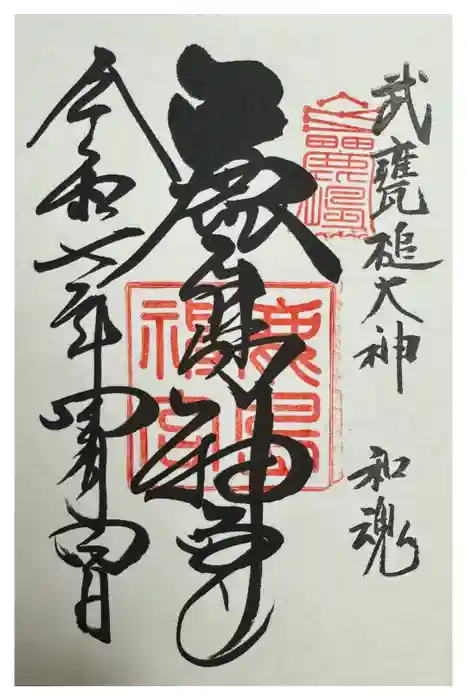 武甕槌大神 和魂
鹿島神宮
鹿島
神宮
令和七年四月四日